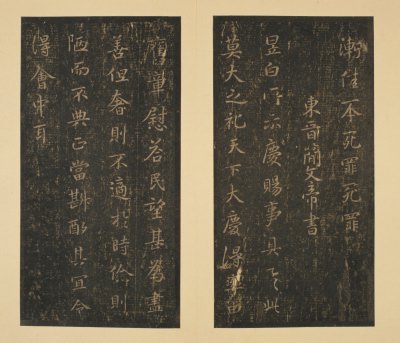 漸佳不死罪死罪
東晉簡文帝書
昱白所示慶賜事具之此
莫大之礼天下大慶
舊章慰答民望甚為盡
善但奢則不適於時儉則
陋而不典正當斟酌其宜令
得會中耳